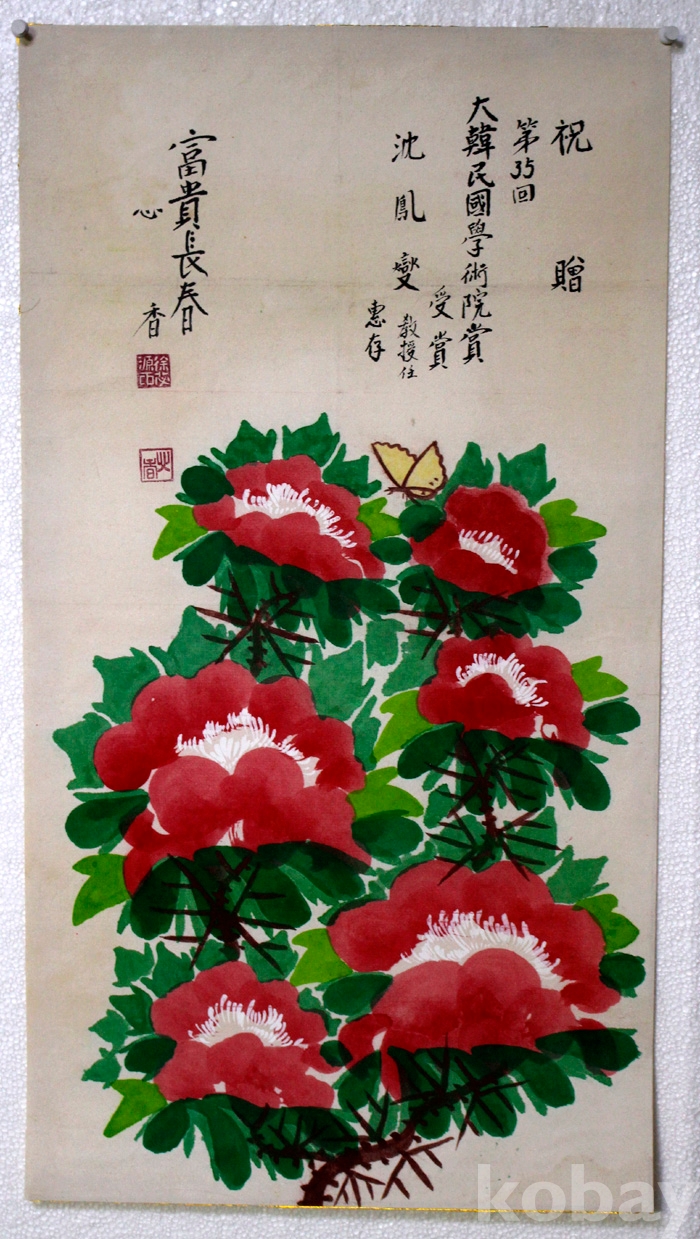 祝贈
第35回
大韓民國學術院賞
受賞
沈鳳燮
敎授任
惠存
富貴長春
心香
kobay